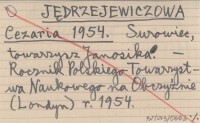 JĘDRZEJEWICZOWA
Cezaria 1954. Surowiec,
towarzysz Janosika. –
Rocznik Polskiego Towarzyst-
wa Naukowego na Obczyźnie
(Londyn) r. 1954.